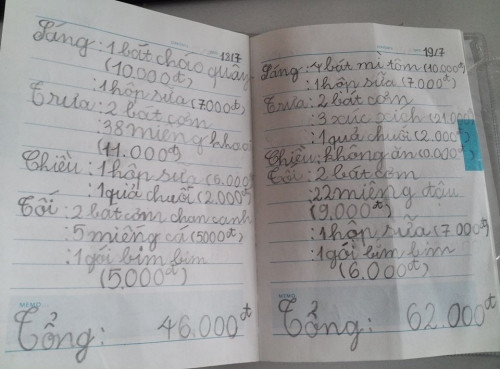 18/7
Sáng: 1 bát cháo quẩy
(10.000đ)
: 1 hộp sữa (7000đ)
Trưa: 2 bát cơm
: 38 miếng khoai
(11.000đ)
Chiều: 1 hộp sữa (6.000đ)
: 1 quả chuối (2.000đ)
Tối: 2 bát cơm chan canh
: 5 miếng cá (5000đ)
: 1 gói bim bim
(5.000đ)
MEMO
Tổng: 46.000đ
19/7
Sáng: 4 bát mì tôm (10.000đ)
: 1 hộp sữa (7.000đ)
Trưa: 2 bát cơm
: 3 xúc xích (21.000
: 1 quả chuối (2.000đ)
Chiều: không ăn (0.000đ)
Tối: 2 bát cơm
: 22 miếng đậu
(9,000đ)
: 1 hộp sữa (7000đ)
: 1 gói bim bim
(6.000đ)
MEMO
Tổng: 62.000đ